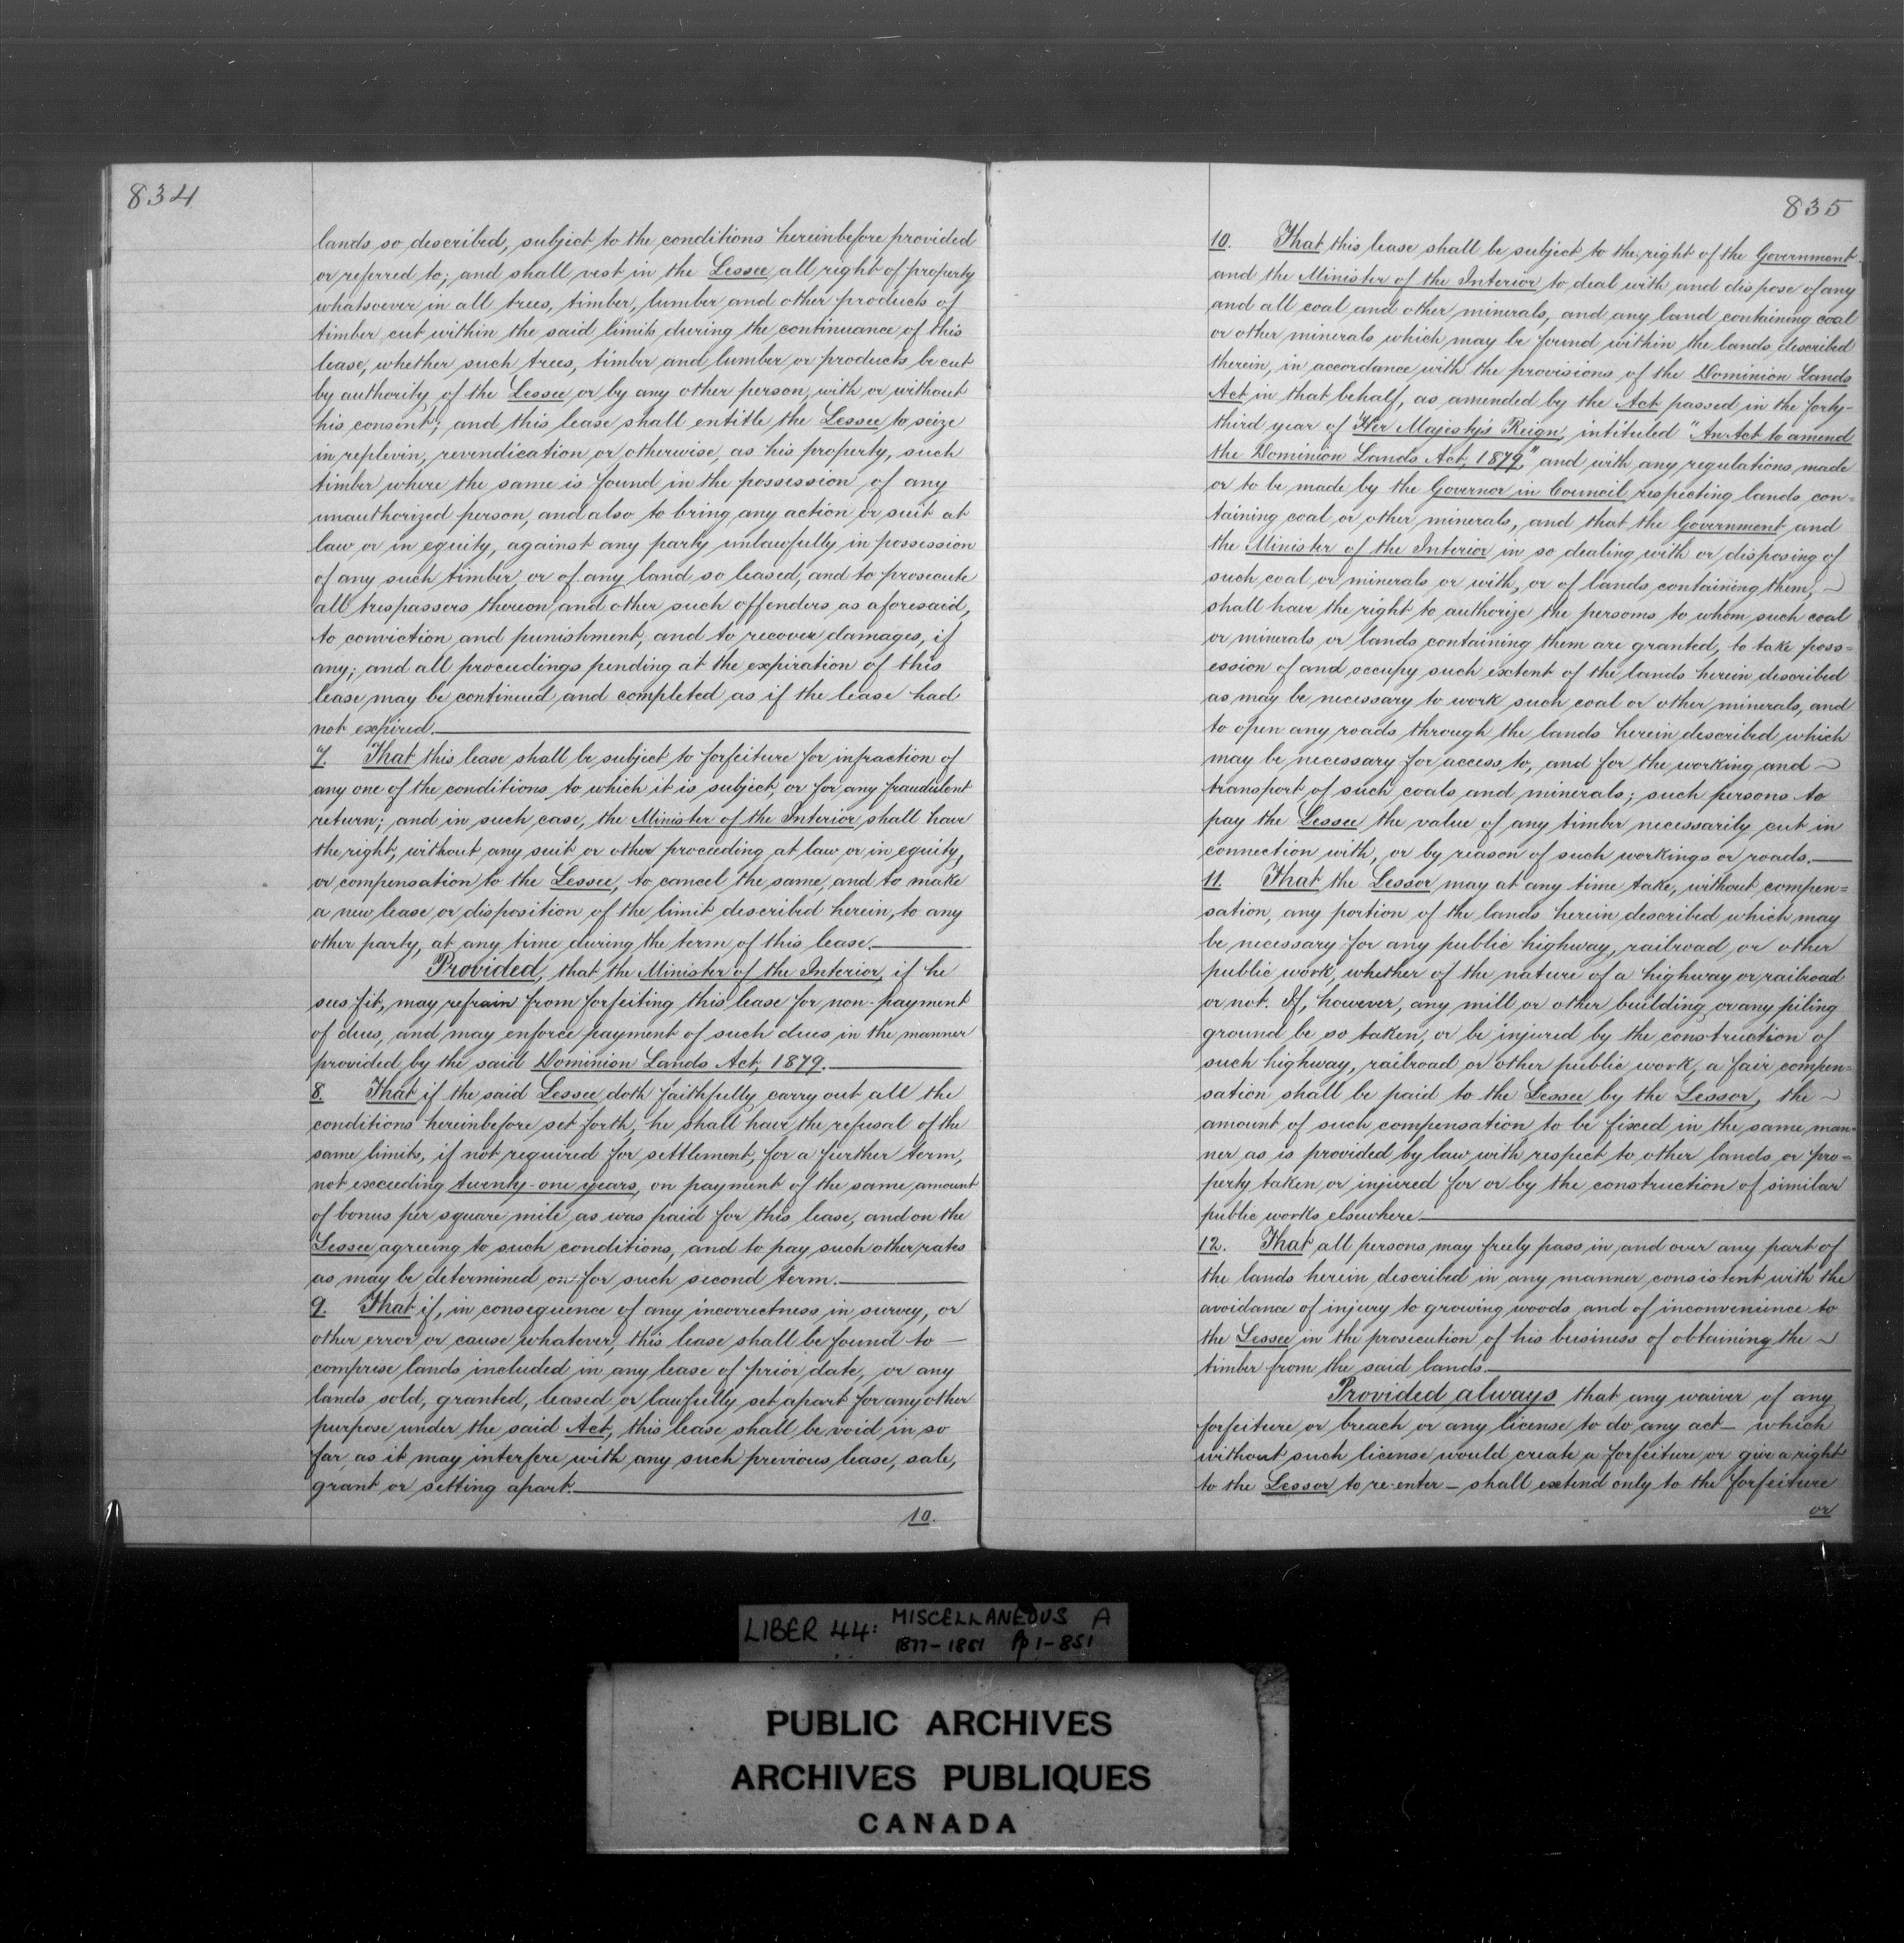 834
lands so described, subject to the conditions hereinbefore provided
or referred to; and shall vest in the Lessee all right of property
whatsoever in all trees, timber, lumber and other products of
timber cut within the said limits during the continuance of this
lease, whether such trees, timber and lumber or products be cut
by authority of the Lessee or by any other person, with or without
his consent; and this lease shall entitle the Lessee to seize
in replevin, revendication or otherwise, as his property, such
timber where the same is found in the possession of any
unauthorized person, and also to bring any action or suit at
law or in equity, against any party unlawfully in possession
of any such timber, or of any land so leased, and to prosecute
all trespassers thereon, and other such offenders as aforesaid,
to conviction and punishment, and to recover damages, if
any; and all proceedings pending at the expiration of this
lease may be continued and completed as if the lease had
not expired.
7. That this lease shall be subject to forfeiture for infraction of
any one of the conditions to which it is subject, or for any fraudulent
return; and in such case, the Minister of the Interior shall have
the right, without any suit or other proceeding at law or in equity,
or compensation to the Lessee, to cancel the same, and to make
a new lease or disposition of the limit described herein, to any
other party, at any time during the term of this lease.
Provided, that the Minister of the Interior, if he
sees fit, may refrain from forfeiting this lease for non-payment
of dues, and may enforce payment of such dues in the manner
provided by the said Dominion Lands Act, 1879.
8. That if the said Lessee doth faithfully carry out all the
conditions hereinbefore set forth, he shall have the refusal of the
same limits, if not required for settlement, for a further term,
not exceeding twenty-one years, on payment of the same amount
of bonus per square mile as was paid for this lease, and on the
Lessee agreeing to such conditions, and to pay such other rates
as may be determined on for such second term.
9. That if, in consequence of any incorrectness in survey, or
other error or cause whatever, this lease shall be found to
comprise lands included in any lease of prior date, or any
lands sold, granted, leased or lawfully set apart for any other
purpose under the said Act, this lease shall be void in so
far as it may interfere with any such previous lease, sale,
grant or setting apart.
10.
835
10. That this lease shall be subject to the right of the Government
and the Minister of the Interior to deal with and dispose of any
and all coal and other minerals, and any land containing coal
or other minerals which may be found within the lands described
therein, in accordance with the provisions of the Dominion Lands
Act in that behalf, as amended by the Act passed in the forty-
third year of Her Majesty's Reign, intituled "An Act to amend
the Dominion Lands Act, 1879," and with any regulations made
or to be made by the Governor in Council respecting lands con=
taining coal or other minerals, and that the Government and
the Minister of the Interior in so dealing with or disposing of
such coal or minerals or with, or of lands containing them,
shall have the right to authorize the persons to whom such coal
or minerals or lands containing them are granted, to take poss=
ession of and occupy such extent of the lands herein described
as may be necessary to work such coal or other minerals, and
to open any roads through the lands herein described which
may be necessary for access to, and for the working and
transport of such coals and minerals; such persons to
pay the Lessee the value of any timber necessarily cut in
connection with, or by reason of such workings or roads.
11. That the Lessor may at any time take, without compen=
sation, any portion of the lands herein described which may
be necessary for any public highway, railroad or other
public work, whether of the nature of a highway or railroad
or not. If, however, any mill or other building or any piling
ground be so taken, or be injured by the construction of
such highway, railroad or other public work, a fair compen=
sation shall be paid to the Lessee by the Lessor, the
amount of such compensation to be fixed in the same man-
ner as is provided by law with respect to other lands or pro=
perty taken or injured for or by the construction of similar
public works elsewhere.
12. That all persons may freely pass in and over any part of
the lands herein described in any manner consistent with the
avoidance of injury to growing woods and of inconvenience to
the Lessee in the prosecution of his business of obtaining the
timber from the said lands.
Provided always that any waiver of any
forfeiture or breach or any license to do any act — which
without such license would create a forfeiture or give a right
to the Lessor to re-enter — shall extend only to the forfeiture
or
LIBER 44: MISCELLANEOUS A
1877-1881 Pp 1-851
PUBLIC ARCHIVES
ARCHIVES PUBLIQUES
CANADA